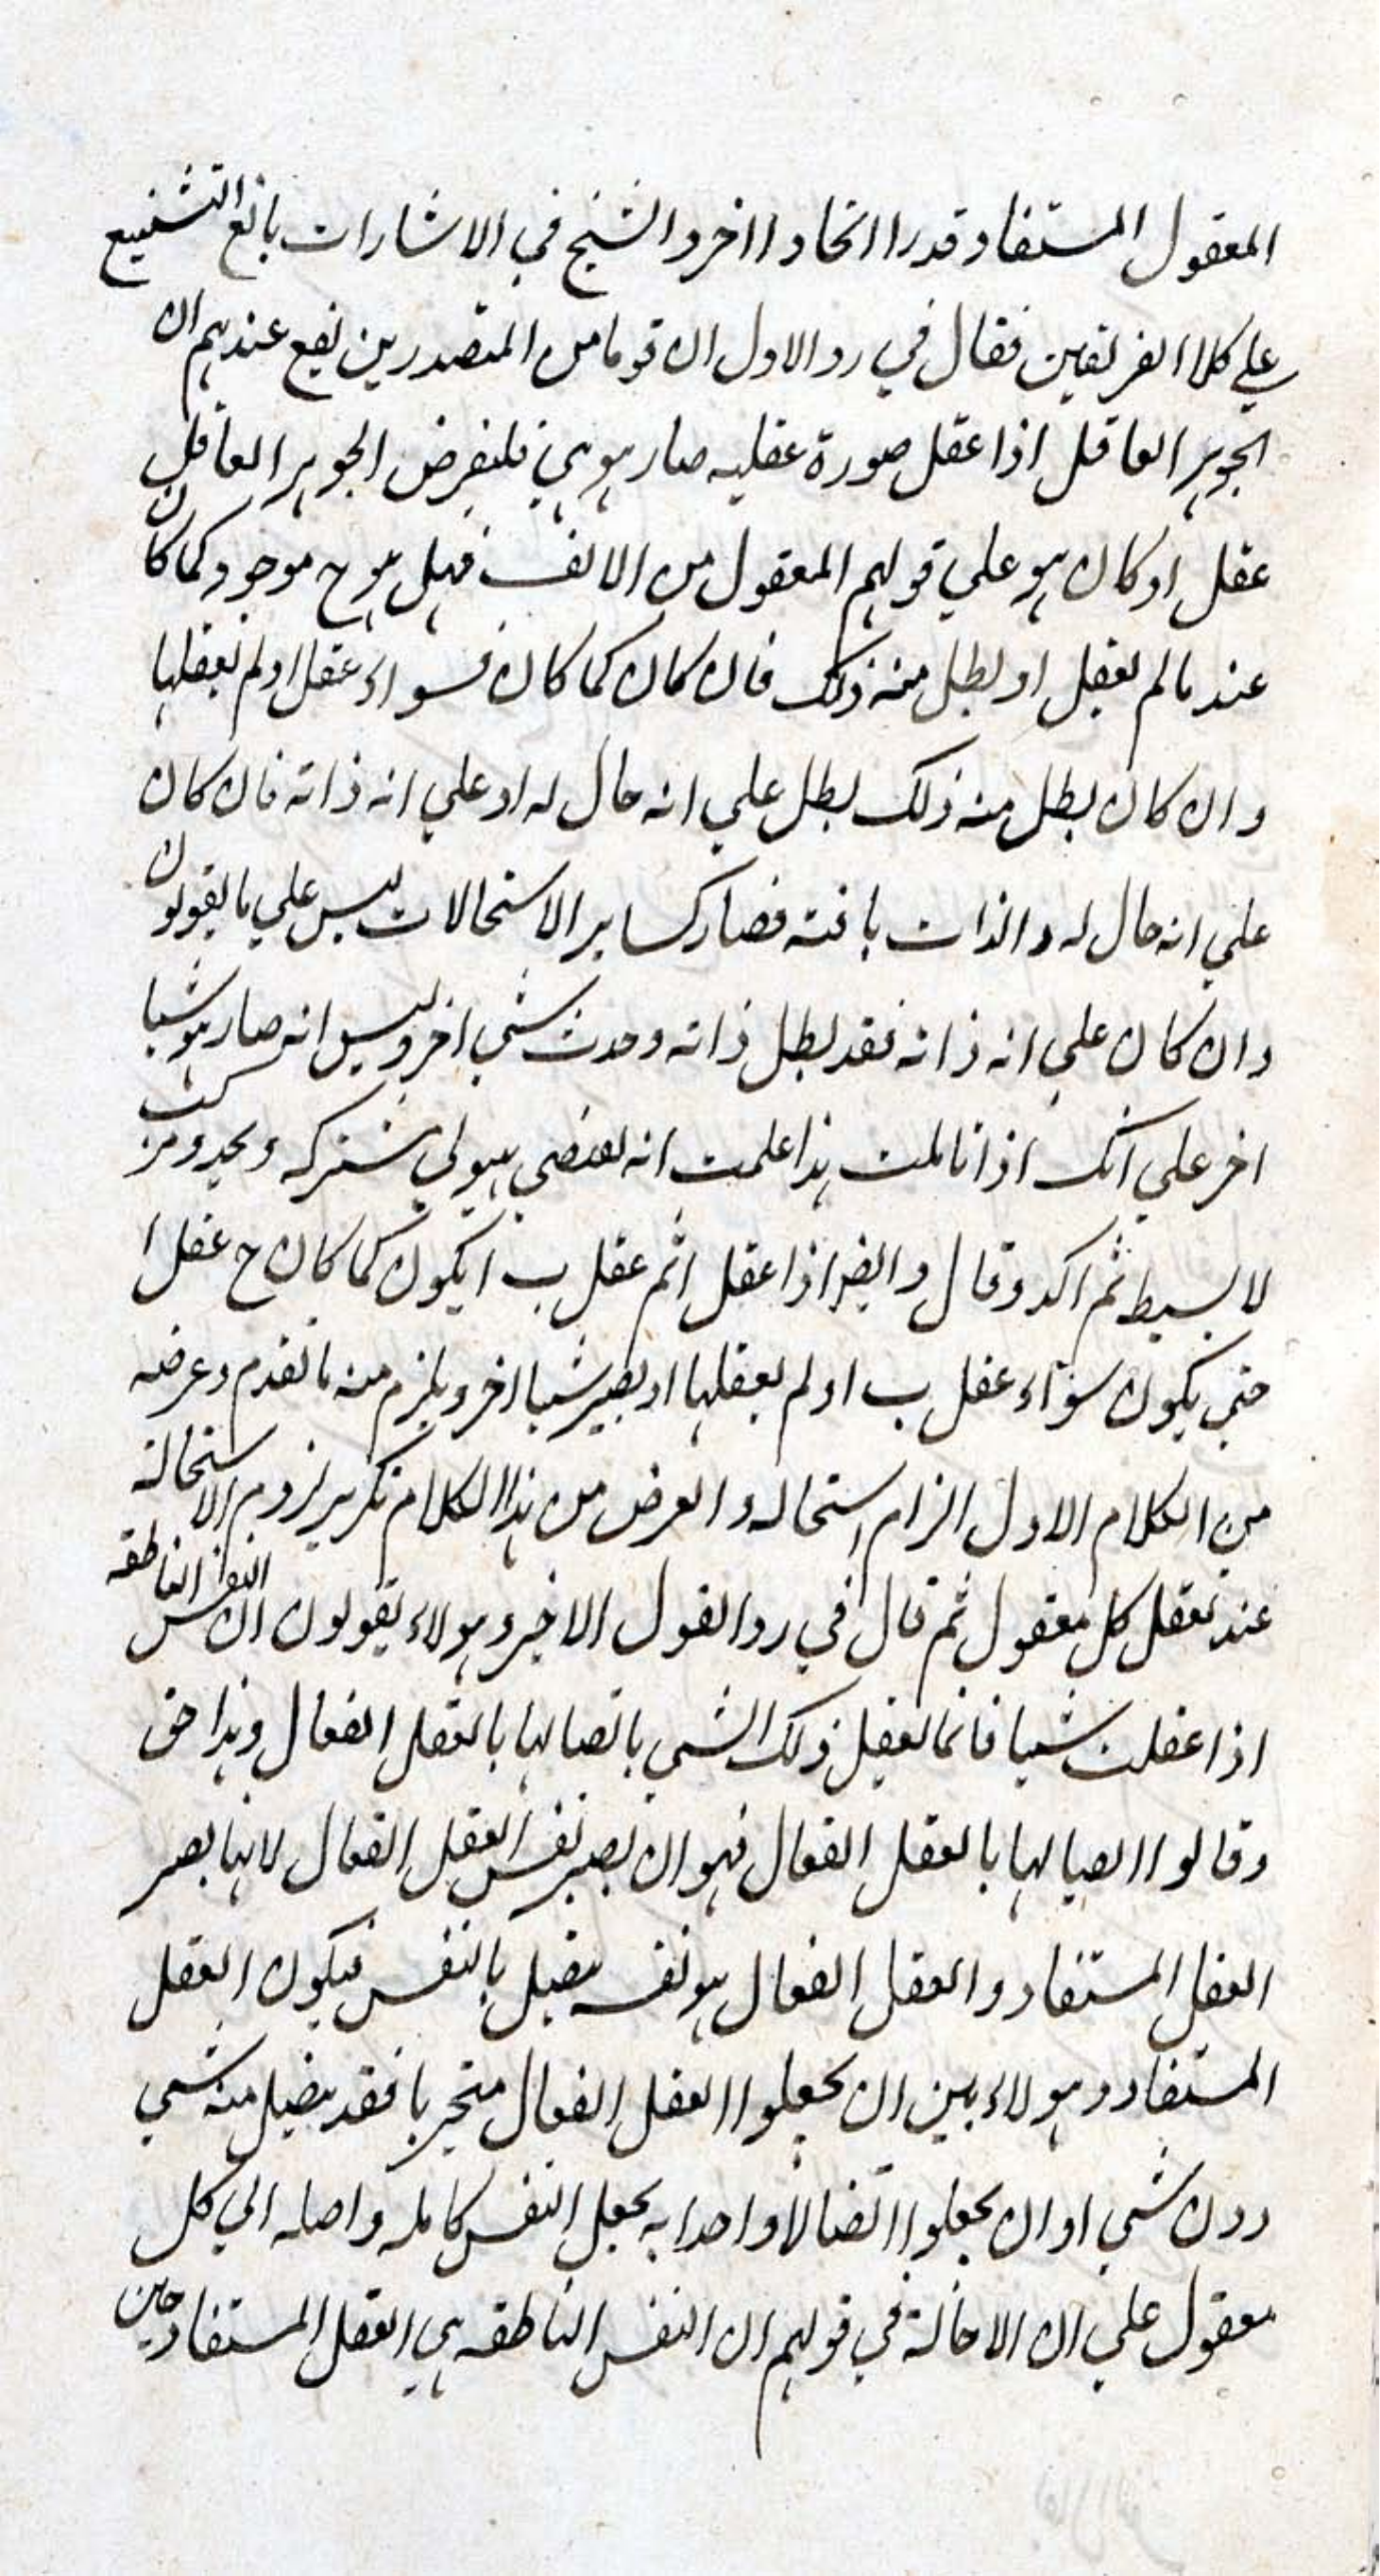 المعقول المستفاد قدرا اتحادا اخر والشيخ في الاشارات بالغ التشنيع
علي كلا الفريقين فقال في رد الاول ان قوما من المتصدرين يقع عندهم ان
الجوهر العاقل اذا عقل صورة عقليه صار هو هي فلنفرض الجوهر العاقل
عقل ا و كان هو علي قولهم المعقول من الالف فهل هو ح موجود كما كان
عند ما لم يعقل او بطل منه ذلك فان كان كما كان فسواء عقل ا و لم يعقلها
وان كان بطل منه ذلك بطل علي انه حال له او علي انه ذاته فان كان
علي انه حال له و الذات باقية فصار كساير الاستحالات ليس علي ما يقولون
وان كان علي انه ذاته فقد بطل ذاته وحدث شي اخر وليس انه صار هو شيا
اخر علي انك اذا تاملت هذا علمت انه يقتضي هيولي مشتركه و تجدد مركب
لا بسيط ثم اكد وقال و ايضا اذا عقل ا ثم عقل ب ا يكون كما كان ح عقل ا
حتي يكون سواء عقل ب او لم يعقلها او يصير شيا اخر و يلزم منه ما تقدم وغرضه
من الكلام الاول الزام استحاله و الغرض من هذا الكلام تكرير لزوم الاستحالة
عند تعقل كل معقول ثم قال في رد القول الاخير و هولاء يقولون ان النفس الناطقه
اذا عقلت شيا فانما يعقل ذلك الشي باتصالها بالعقل الفعال و هذا حق
وقالوا اتصالها بالعقل الفعال فهو ان يصير نفس العقل الفعال لانها يصير
العقل المستفاد و العقل الفعال هو نفسه يتصل بالنفس فيكون العقل
المستفاد و هولاء بين ان يجعلوا العقل الفعال متجزيا فقد يتصل منه شي
دون شي او ان يجعلوا اتصالا واحدا به يجعل النفس كامله واصله الي كل
معقول علي ان الاحالة في قولهم ان النفس الناطقه هي العقل المستفاد حين